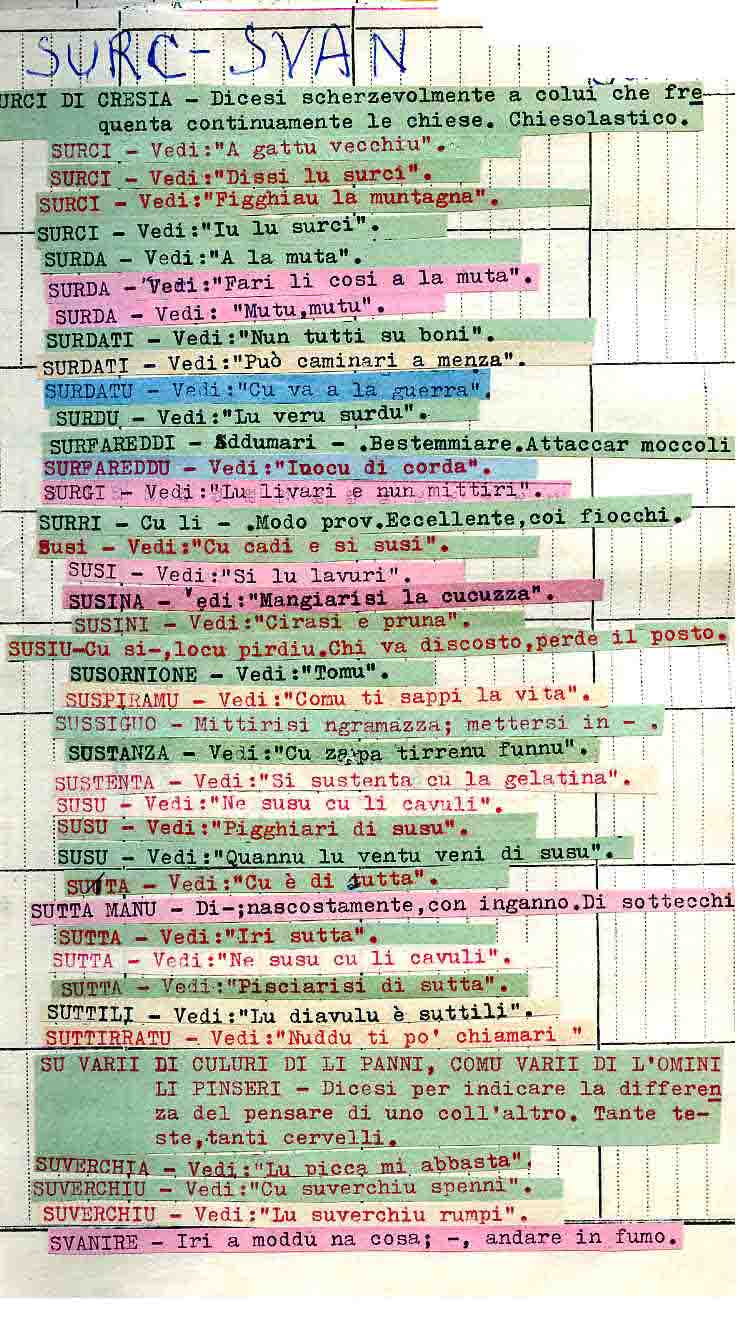 SURC-SVAN
URCI DI CRESIA - Dicesi scherzevolmente a colui che fre-
quenta continuamente le chiese. Chiesolastico.
SURCI - Vedi:"A gattu vecchiu".
SURCI - Vedi:"Dissi lu surci".
SURCI - Vedi:"Figghiau la muntagna".
SURCI - Vedi:"Iu lu surci".
SURDA - Vedi:"A la muta".
SURDA - Vedi:"Fari li cosi a la muta".
SURDA - Vedi: "Mutu,mutu".
SURDATI - Vedi:"Nun tutti su boni".
SURDATI - Vedi:"Può caminari a menza".
SURDATU - Vedi:"Cu va a la guerra".
SURDU - Vedi:"Lu veru surdu".
SURFAREDDI - Addumari - .Bestemmiare.Attaccar moccoli
SURFAREDDU - Vedi:"Iuocu di corda".
SURGI - Vedi:"Lu livari e nun mittiri".
SURRI - Cu li - .Modo prov.Eccellente,coi fiocchi.
Susi - Vedi:"Cu cadi e si susi".
SUSI - Vedi:"Si lu lavuri".
SUSINA - Vedi:"Mangiarisi la cucuzza".
SUSINI - Vedi:"Cirasi e pruna".
SUSIU-Cu si-,locu pirdiu.Chi va discosto,perde il posto.
SUSORNIONE - Vedi:"Tomu".
SUSPIRAMU - Vedi:"Comu ti sappi la vita".
SUSSIGUO - Mittirisi ngramazza; mettersi in - .
SUSTANZA - Vedi:"Cu zappa tirrenu funnu".
SUSTENTA - Vedi:"Si sustenta cu la gelatina".
SUSU - Vedi:"Ne susu cu li cavuli".
SUSU - Vedi:"Pigghiari di susu".
SUSU - Vedi:"Quannu lu ventu veni di susu".
SUTTA - Vedi:"Cu è di sutta".
SUTTA MANU - Di-;nascostamente,con inganno.Di sottecchi
SUTTA - Vedi:"Iri sutta".
SUTTA - Vedi:"Ne susu cu li cavuli".
SUTTA - Vedi:"Pisciarisi di sutta".
SUTTILI - Vedi:"Lu diavulu è suttili".
SUTTIRRATU - Vedi:"Nuddu ti po' chiamari "
SU VARII DI CULURI DI LI PANNI, COMU VARII DI L'OMINI
LI PINSERI - Dicesi per indicare la differen
za del pensare di uno coll'altro. Tante te-
ste,tanti cervelli.
SUVERCHIA - Vedi:"Lu picca mi abbasta".
SUVERCHIU - Vedi:"Cu suverchiu spenni".
SUVERCHIU - Vedi:"Lu suverchiu rumpi".
SVANIRE - Iri a moddu na cosa; -, andare in fumo.